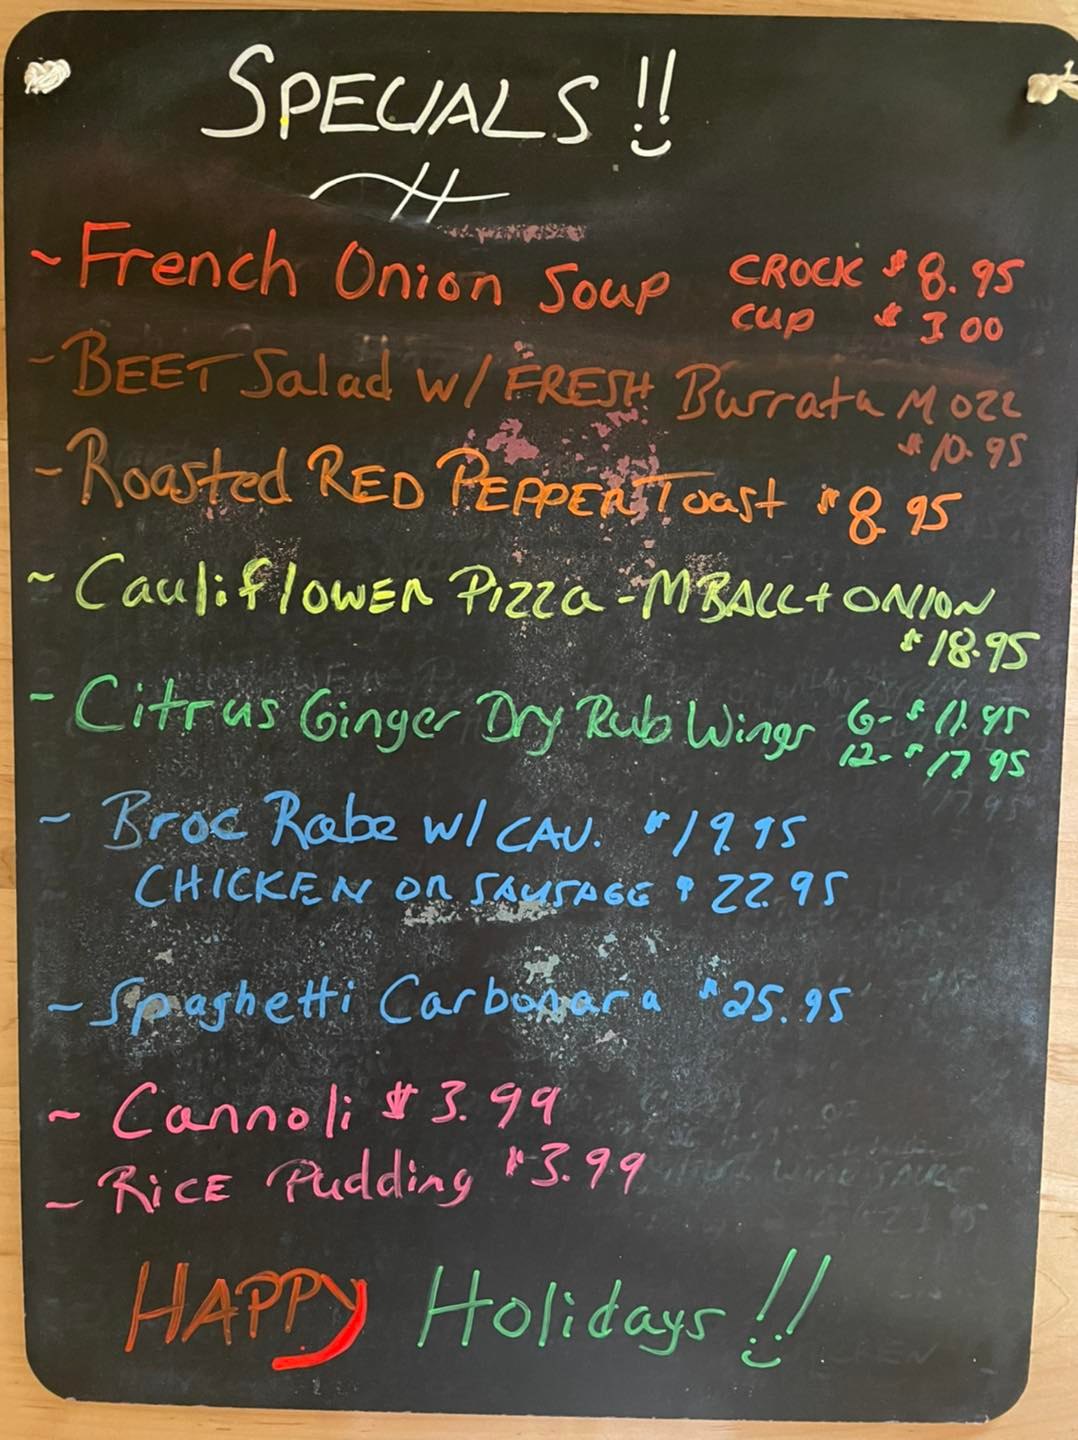 SPECIALS !!
~ French Onion Soup CROCK $8.95
CUP $3.00
- BEET Salad w/ FRESH Burrata MOZZ
$10.95
- Roasted RED PEPPER Toast $8.95
~ Cauliflower Pizza - MBALL + ONION
$18.95
- Citrus Ginger Dry Rub Wings 6- $11.95
12- $17.95
~ Broc Rabe w/ CAV. $19.95
CHICKEN OR SAUSAGE $22.95
~ Spaghetti Carbonara $25.95
~ Cannoli $3.99
~ RICE Pudding $3.99
HAPPY Holidays !!